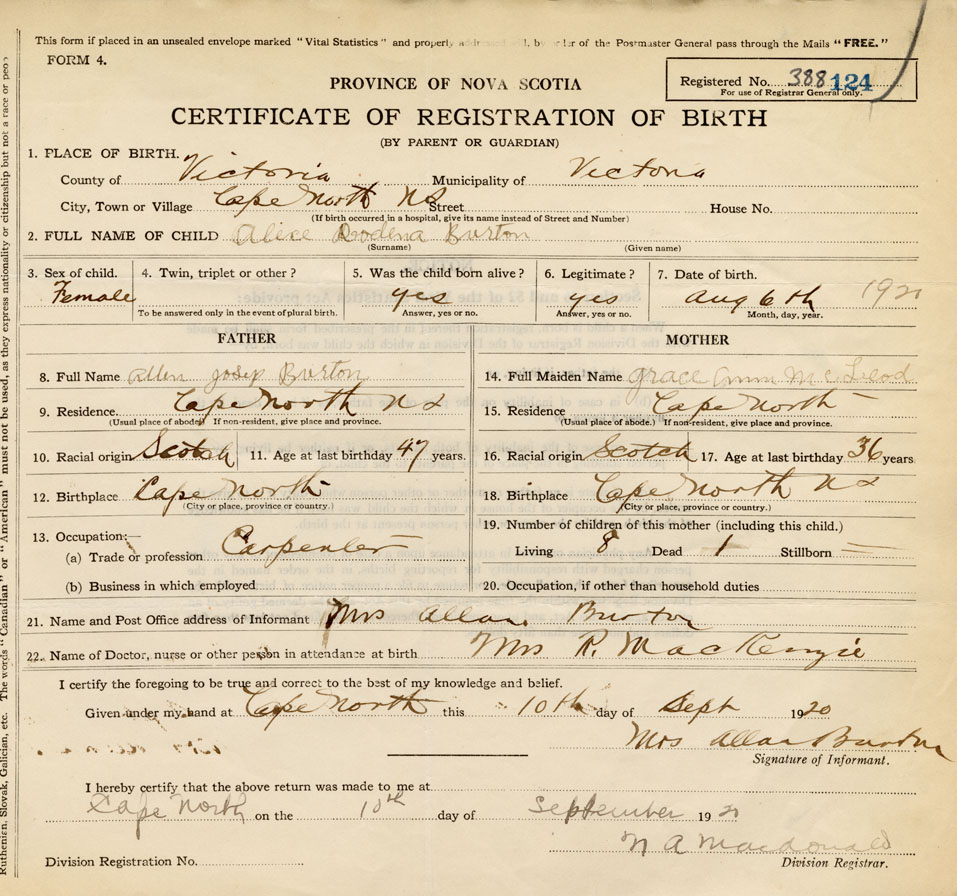 This form if placed in an unsealed envelope marked "Vital Statistics" and properly addressed will, by order of the Postmaster General pass through the Mails "FREE."
FORM 4.
PROVINCE OF NOVA SCOTIA
Registered No. 388 124
For use of Registrar General only.
CERTIFICATE OF REGISTRATION OF BIRTH
(BY PARENT OR GUARDIAN)
1. PLACE OF BIRTH.
County of Victoria Municipality of Victoria
City, Town or Village Cape North NS Street House No.
(If birth occurred in a hospital, give its name instead of Street and Number)
2. FULL NAME OF CHILD Alice Dodena Burton
(Surname) (Given name)
3. Sex of child. 4. Twin, triplet or other? 5. Was the child born alive? 6. Legitimate? 7. Date of birth.
Female yes yes Aug 6th 1920
To be answered only in the event of plural birth. Answer, yes or no. Answer, yes or no. Month, day, year.
FATHER MOTHER
8. Full Name Allen Josep Burton 14. Full Maiden Name Grace Ann McLeod
9. Residence. Cape North NS 15. Residence Cape North
(Usual place of abode) If non-resident, give place and province. (Usual place of abode.) If non-resident, give place and province.
10. Racial origin Scotch 11. Age at last birthday 47 years. 16. Racial origin Scotch 17. Age at last birthday 36 years
12. Birthplace Cape North 18. Birthplace Cape North NS
(City or place, province or country.) (City or place, province or country.)
13. Occupation:— 19. Number of children of this mother (including this child.)
(a) Trade or profession Carpenter Living 8 Dead 1 Stillborn —
(b) Business in which employed 20. Occupation, if other than household duties
21. Name and Post Office address of Informant Mrs Allan Burton
22. Name of Doctor, nurse or other person in attendance at birth Mrs R. MacKenzie
I certify the foregoing to be true and correct to the best of my knowledge and belief.
Given under my hand at Cape North this 10th day of Sept 1920
Mrs Allan Burton
Signature of Informant.
I hereby certify that the above return was made to me at
Cape North on the 10th day of September 1920
N A Macdonald
Division Registration No. Division Registrar.
Ruthenian, Slovak, Galician, etc. The words "Canadian" or "American" must not be used, as they express nationality or citizenship but not a race or